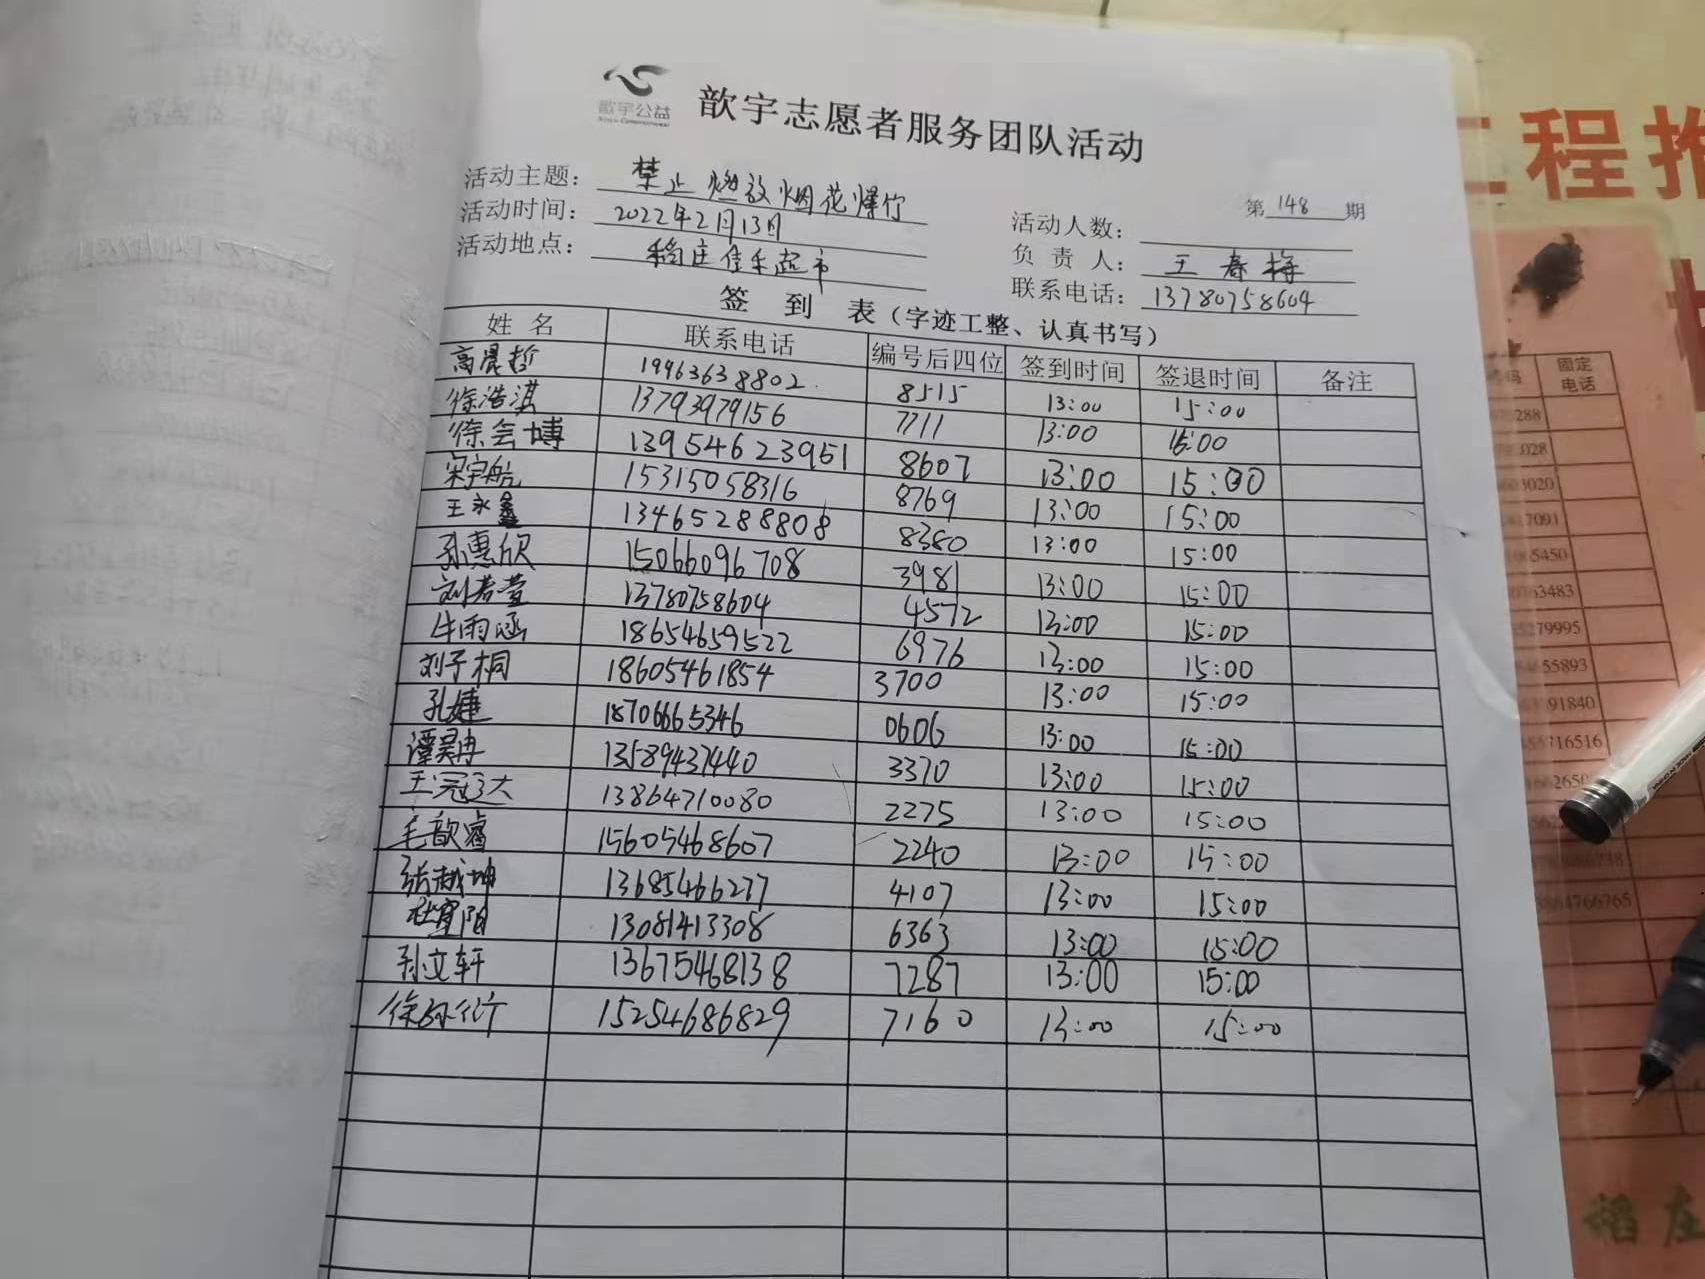 歆宇公益
歆宇志愿者服务团队活动
第 148 期
活动主题： 禁止燃放烟花爆竹
活动人数：
活动时间： 2022年2月13日
负 责 人： 王春梅
活动地点： 稻庄佳乐超市
联系电话： 13780758604
签 到 表（字迹工整、认真书写）
姓 名 联系电话 编号后四位 签到时间 签退时间 备注
高晨哲 19963638802 8515 13:00 15:00
徐浩淇 13793979156 7711 13:00 15:00
徐会博 13954623951 8607 13:00 15:00
宋宇航 15315058316 8769 13:00 15:00
王永鑫 13465288808 8380 13:00 15:00
孙惠欣 15066096708 3981 13:00 15:00
刘若萱 13780758604 4572 13:00 15:00
牛雨涵 18654659522 6976 13:00 15:00
刘子桐 18605461854 3700 13:00 15:00
孔婕 18706665346 0606 13:00 15:00
谭昊冉 13589437440 3370 13:00 15:00
王冠达 13864710080 2275 13:00 15:00
毛歆睿 15605468607 2240 13:00 15:00
张越坤 13685466277 4107 13:00 15:00
杜宜阳 13081413308 6363 13:00 15:00
孙文轩 13675468138 7287 13:00 15:00
徐 15254686829 7160 13:00 15:00
工程推
固定
电话
288
028
3020
7091
5450
3483
279995
55893
91840
716516
62650
4766765
稻庄